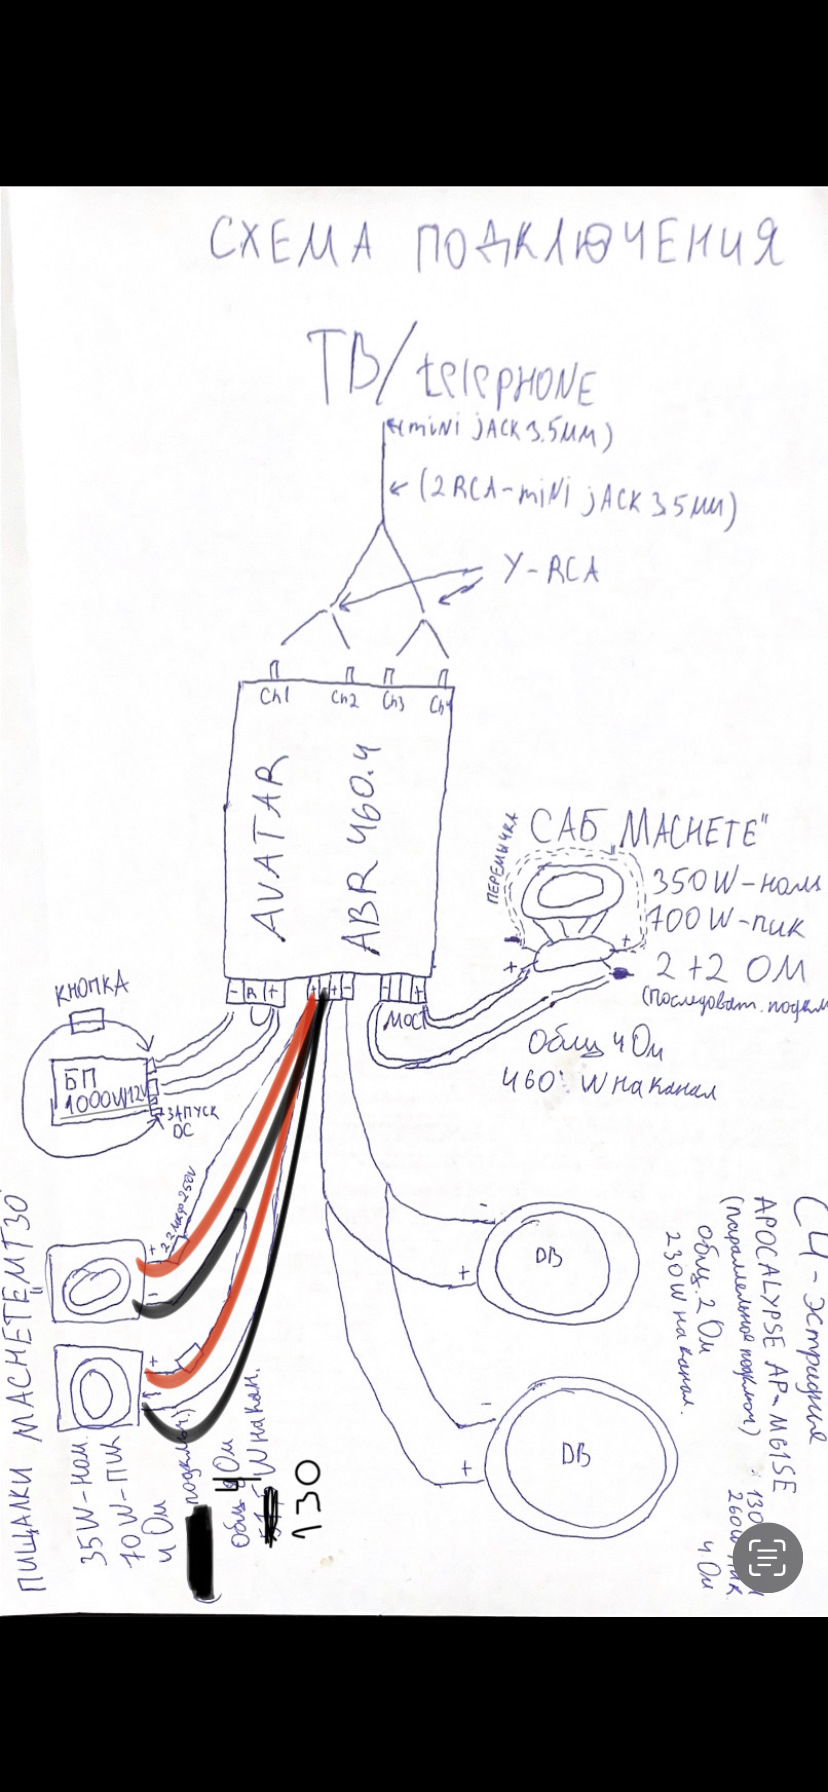 СХЕМА ПОДКЛЮЧЕНИЯ
ТВ/telePHONE
(miNi jACK 3.5мм)
(2 RCA-miNi jACK 3,5мм)
Y-RCA
Ch1 Ch2 Ch3 Ch4
AVATAR
ABR 460.4
САБ „MACHETE"
ПЕРЕМЫЧКА
350W-ном
700W-пик
2+2 ОМ
(последоват. подкл
+ +
- R + + + - - +
МОСТ
общ 4Ом
460 W на канал
КНОПКА
БП
1000W/12V
ЗАПУСК
DC
2.2 мкф 250V
+
-
+
ПИЩАЛКИ MACHETE MT30
35W-ном.
70W-ПИК
4 Ом
подключ.)
общ 4 Ом
W на кан.
130
-
DB
+
-
DB
+
СЧ-эстрадная
APOCALYPSE AP-M61SE
(параллельное подключ)
общ. 2 Ом
230W на канал.
130
260W пик
4 Ом